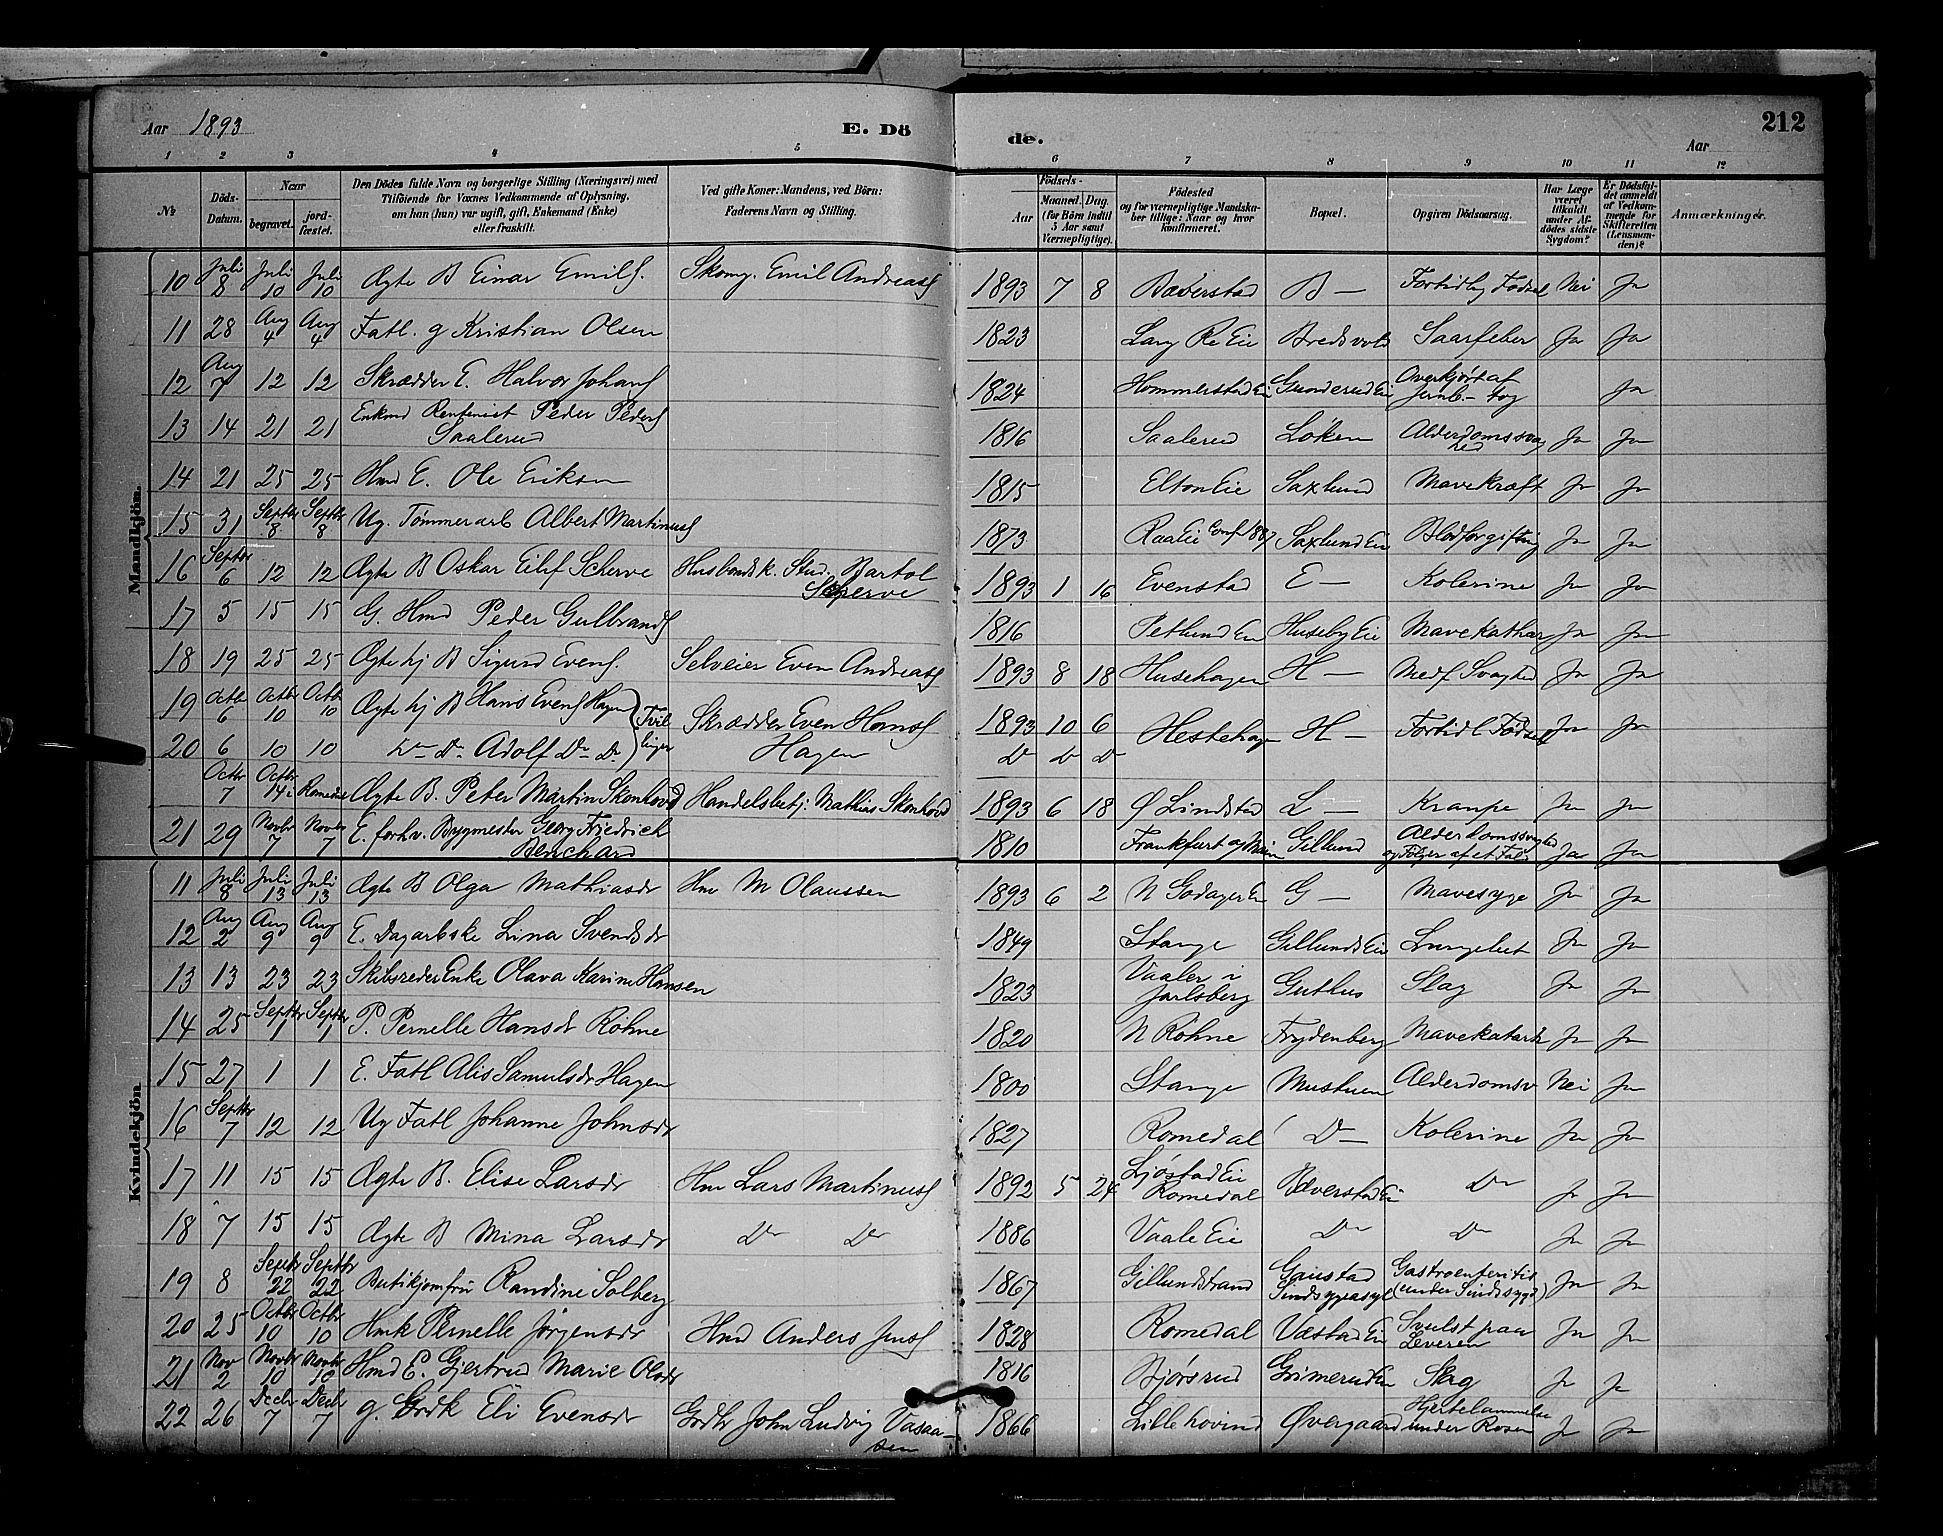 Aar 1893 E. Dö de. Aar 212
1 2 3 4 5 6 7 8 9 10 11 12
№ Døds-Datum. Naar begravet. jordfæstet. Den Dödes fulde Navn og borgerlige Stilling (Næringsvei) med Tilföiende for Voxnes Vedkommende af Oplysning, om han (hun) var ugift, gift, Enkemand (Enke) eller fraskilt. Ved gifte Koner: Mandens, ved Börn: Faderens Navn og Stilling. Födsels- Aar Maaned. Dag. (for Börn indtil 5 Aar samt Værnepligtige). Födested og for værnepligtige Mandskaber tillige: Naar og hvor konfirmeret. Bopæl. Opgiven Dödsaarsag. Har Læge været tilkaldt under Afdödes sidste Sygdom? Er Dödsfaldet anmeldt af Vedkommende for Skifteretten (Lensmanden)? Anmærkninger.
Mandkjön.
10 Juli 8 Juli 10 Juli 10 Ægte B Einar Emils. Skomg. Emil Andreass 1893 7 8 Bæverstad B — Fortidlig Födsel Nei Ja
11 28 Aug 4 Aug 4 Fatl. g Kristian Olsen 1823 Lang Re Eie Bredsvold Saarfeber Ja Ja
12 Aug 7 12 12 Skrædder E. Halvor Johans 1824 Hommerstad Ei Gunderud Ei Overkjørt af Jernb.-tog Ja
13 14 21 21 Enkmd Rentenist Peder Peders Saalerud 1816 Saalerud Løken Alderdomssvaghed Ja Ja
14 21 25 25 Hmd E. Ole Eriksen 1815 Elton Eie Saxlund Mavekræft Ja Ja
15 31 Septbr 8 Septbr 8 Ug. Tømmerarb Albert Martinuss 1873 Raa Eie Conf 1887 Saxlund Eie Blodforgiftnig Ja Ja
16 Septbr 6 12 12 Ægte B Oskar Eilif Scherve Husbondsk. Stud. Bartol Scherve 1893 1 16 Evenstad E — Kolerine Ja Ja
17 5 15 15 G. Hmd Peder Gulbrands 1816 Petlund Eie Huseby Eie Mavekathar Ja Ja
18 19 25 25 Ægte hj B Sigurd Evens. Selveier Even Andreass 1893 8 18 Husehagen H — Medf. Svaghed Ja Ja
19 Octbr 6 Octbr 10 Octbr 10 Ægte hj B Hans Evens Hagen } Tvillinger Skrædder Even Hans Hagen 1893 10 6 Hestehagen H — Fortidl Födsel Ja Ja
20 6 10 10 Do Do Adolf Do Do D D D
Octbr 7 Octbr 14 i Romedal Ægte B. Peter Martin Skonhovd Handelsbetj: Mathias Skonhovd 1893 6 18 Ø Lindstad L — Krampe Ja Ja
21 29 Novbr 7 Novbr 7 E. forhv. Bygmester Georg Friedrich Benchard 1810 Frankfurt a/Main Gillund Alderdomssvaghed og Følger af et Fald Ja Ja
Kvindekjön
11 Juli 8 Juli 13 Juli 13 Ægte B Olga Mathiasdr Hm M Olaussen 1893 6 2 N Godager Ei G — Mavesyge Ja Ja
12 Aug 2 Aug 9 Aug 9 E. Dagarbske Lina Svendsdr 1849 Stange Gillunds Eie Lungebet Ja Ja
13 13 23 23 Skibsreder Enke Olava Karine Hansen 1823 Vaaler i Jarlsberg Guthus Slag Ja Ja
14 25 Septbr 1 Septbr 1 P. Pernelle Hansdr Røhne 1820 N Røhne Frydenberg Mavekatarh Ja Ja
15 27 1 1 E. Fatl Alis Samulsdr Hagen 1800 Stange Mustuen Alderdomsv Nei Ja
16 Septbr 7 12 12 Ug Fatl Johanne Johnsdr 1827 Romedal D — Kolerine Ja Ja
17 11 15 15 Ægte B. Elise Larsdr Hm Lars Martinuss 1892 5 24 Ljøstad Eie Romedal Bæverstad Ei Do Ja Ja
18 7 15 15 Ægte B Mina Larsdr Do Do 1886 Vaale Eie Do Do Ja Ja
19 8 Septbr 22 Septbr 22 Butikjomfru Randine Solberg 1867 Gillundstrand Gaustad Sindsygeasyl Gastroenteritis (under Sindssyge) Ja Ja
20 25 Octbr 10 Octbr 10 Hmk Pernelle Jørgensdr Hmd Anders Jens 1828 Romedal Væstad Ei Svulst paa Leveren Ja Ja
21 Nov 2 Novbr 10 Novbr 10 Hmd E. Gjertrud Marie Olsdr 1816 Bjørsrud Grimerud Ei Slag Ja Ja
22 26 Decbr 7 Decbr 7 g. Grdk Eli Evensdr Grdbr John Ludvig Vasaasen 1866 Lille hovind Øvergaard Hjertelammelse under Rosen Ja Ja